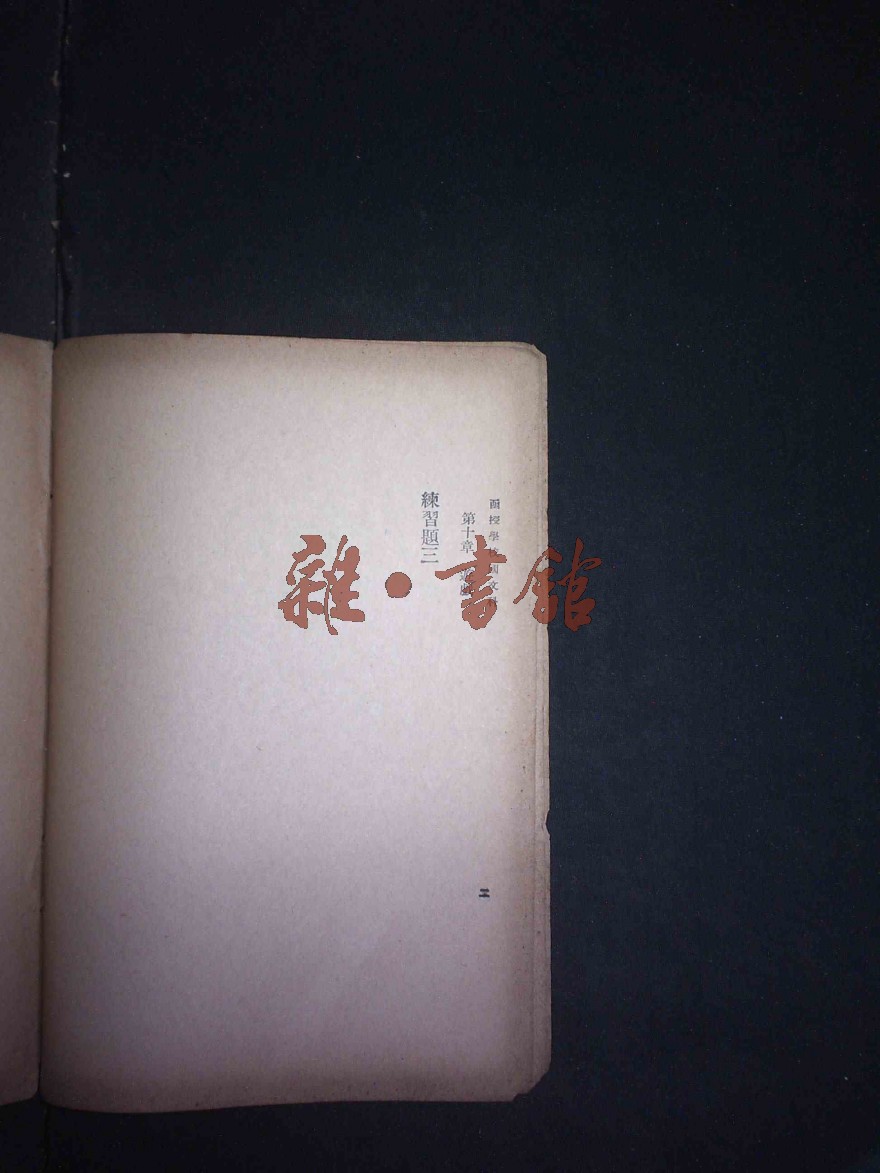 函授學校國文科
第十章
練習題三
二
雜·書館